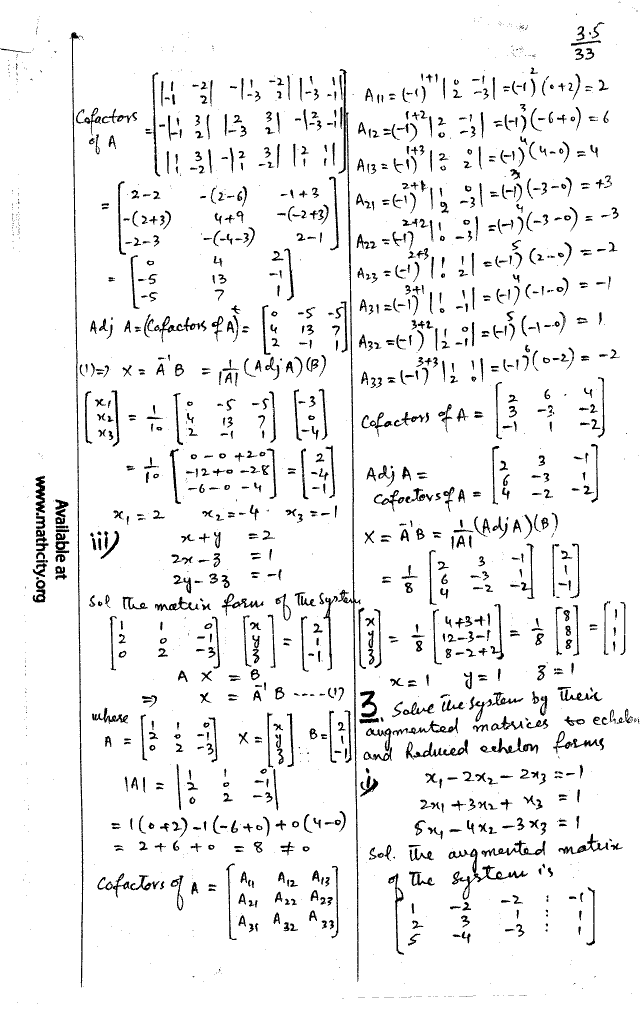 3.5
33
Cofactors of A = [ |1 -2; -1 2| -|1 -2; -3 2| |1 1; -3 -1| ]
[ -|1 3; -1 2| |2 3; -3 2| -|2 1; -3 -1| ]
[ |1 3; 1 -2| -|2 3; 1 -2| |2 1; 1 1| ]
= [ 2-2 -(2-6) -1+3 ]
[ -(2+3) 4+9 -(-2+3) ]
[ -2-3 -(-4-3) 2-1 ]
= [ 0 4 2 ]
[ -5 13 -1 ]
[ -5 7 1 ]
Adj A = (Cofactors of A)^t = [ 0 -5 -5 ]
[ 4 13 7 ]
[ 2 -1 1 ]
(1) => X = A^-1 B = 1/|A| (Adj A)(B)
[ x1 ] [ 0 -5 -5 ] [ -3 ]
[ x2 ] = 1/10 [ 4 13 7 ] [ 0 ]
[ x3 ] [ 2 -1 1 ] [ -4 ]
= 1/10 [ 0-0+20 ] = [ 2 ]
[ -12+0-28 ] [ -4 ]
[ -6-0-4 ] [ -1 ]
x1 = 2 x2 = -4. x3 = -1
iii) x + y = 2
2x - z = 1
2y - 3z = -1
Sol The matrix form of The System
[ 1 1 0 ] [ x ] [ 2 ]
[ 2 0 -1 ] [ y ] = [ 1 ]
[ 0 2 -3 ] [ z ] [ -1 ]
A X = B
=> X = A^-1 B ----(1)
where
A = [ 1 1 0 ] X = [ x ] B = [ 2 ]
[ 2 0 -1 ] [ y ] [ 1 ]
[ 0 2 -3 ] [ z ] [ -1 ]
|A| = | 1 1 0 |
| 2 0 -1 |
| 0 2 -3 |
= 1(0+2)-1(-6+0)+0(4-0)
= 2+6+0 = 8 ≠ 0
Cofactors of A = [ A11 A12 A13 ]
[ A21 A22 A23 ]
[ A31 A32 A33 ]
A11 = (-1)^1+1 |0 -1; 2 -3| = (-1)^2 (0+2) = 2
A12 = (-1)^1+2 |2 -1; 0 -3| = (-1)^3 (-6+0) = 6
A13 = (-1)^1+3 |2 0; 0 2| = (-1)^4 (4-0) = 4
A21 = (-1)^2+1 |1 0; 2 -3| = (-1)^3 (-3-0) = +3
A22 = (-1)^2+2 |1 0; 0 -3| = (-1)^4 (-3-0) = -3
A23 = (-1)^2+3 |1 1; 0 2| = (-1)^5 (2-0) = -2
A31 = (-1)^3+1 |1 0; 0 -1| = (-1)^4 (-1-0) = -1
A32 = (-1)^3+2 |1 0; 2 -1| = (-1)^5 (-1-0) = 1
A33 = (-1)^3+3 |1 1; 2 0| = (-1)^6 (0-2) = -2
Cofactors of A = [ 2 6 4 ]
[ 3 -3 -2 ]
[ -1 1 -2 ]
Adj A =
Cofactors of A = [ 2 3 -1 ]
[ 6 -3 1 ]
[ 4 -2 -2 ]
X = A^-1 B = 1/|A| (Adj A)(B)
= 1/8 [ 2 3 -1 ] [ 2 ]
[ 6 -3 1 ] [ 1 ]
[ 4 -2 -2 ] [ -1 ]
[ x ] [ 4+3+1 ] [ 8 ] [ 1 ]
[ y ] = 1/8 [ 12-3-1 ] = 1/8 [ 8 ] = [ 1 ]
[ z ] [ 8-2+2 ] [ 8 ] [ 1 ]
x = 1 y = 1 z = 1
3. Solve The System by Their
augmented matrices to echelon
and Reduced echelon forms
i) x1 - 2x2 - 2x3 = -1
2x1 + 3x2 + x3 = 1
5x1 - 4x2 - 3x3 = 1
Sol. The augmented matrix
of The System is
[ 1 -2 -2 : -1 ]
[ 2 3 1 : 1 ]
[ 5 -4 -3 : 1 ]
Available at
www.mathcity.org